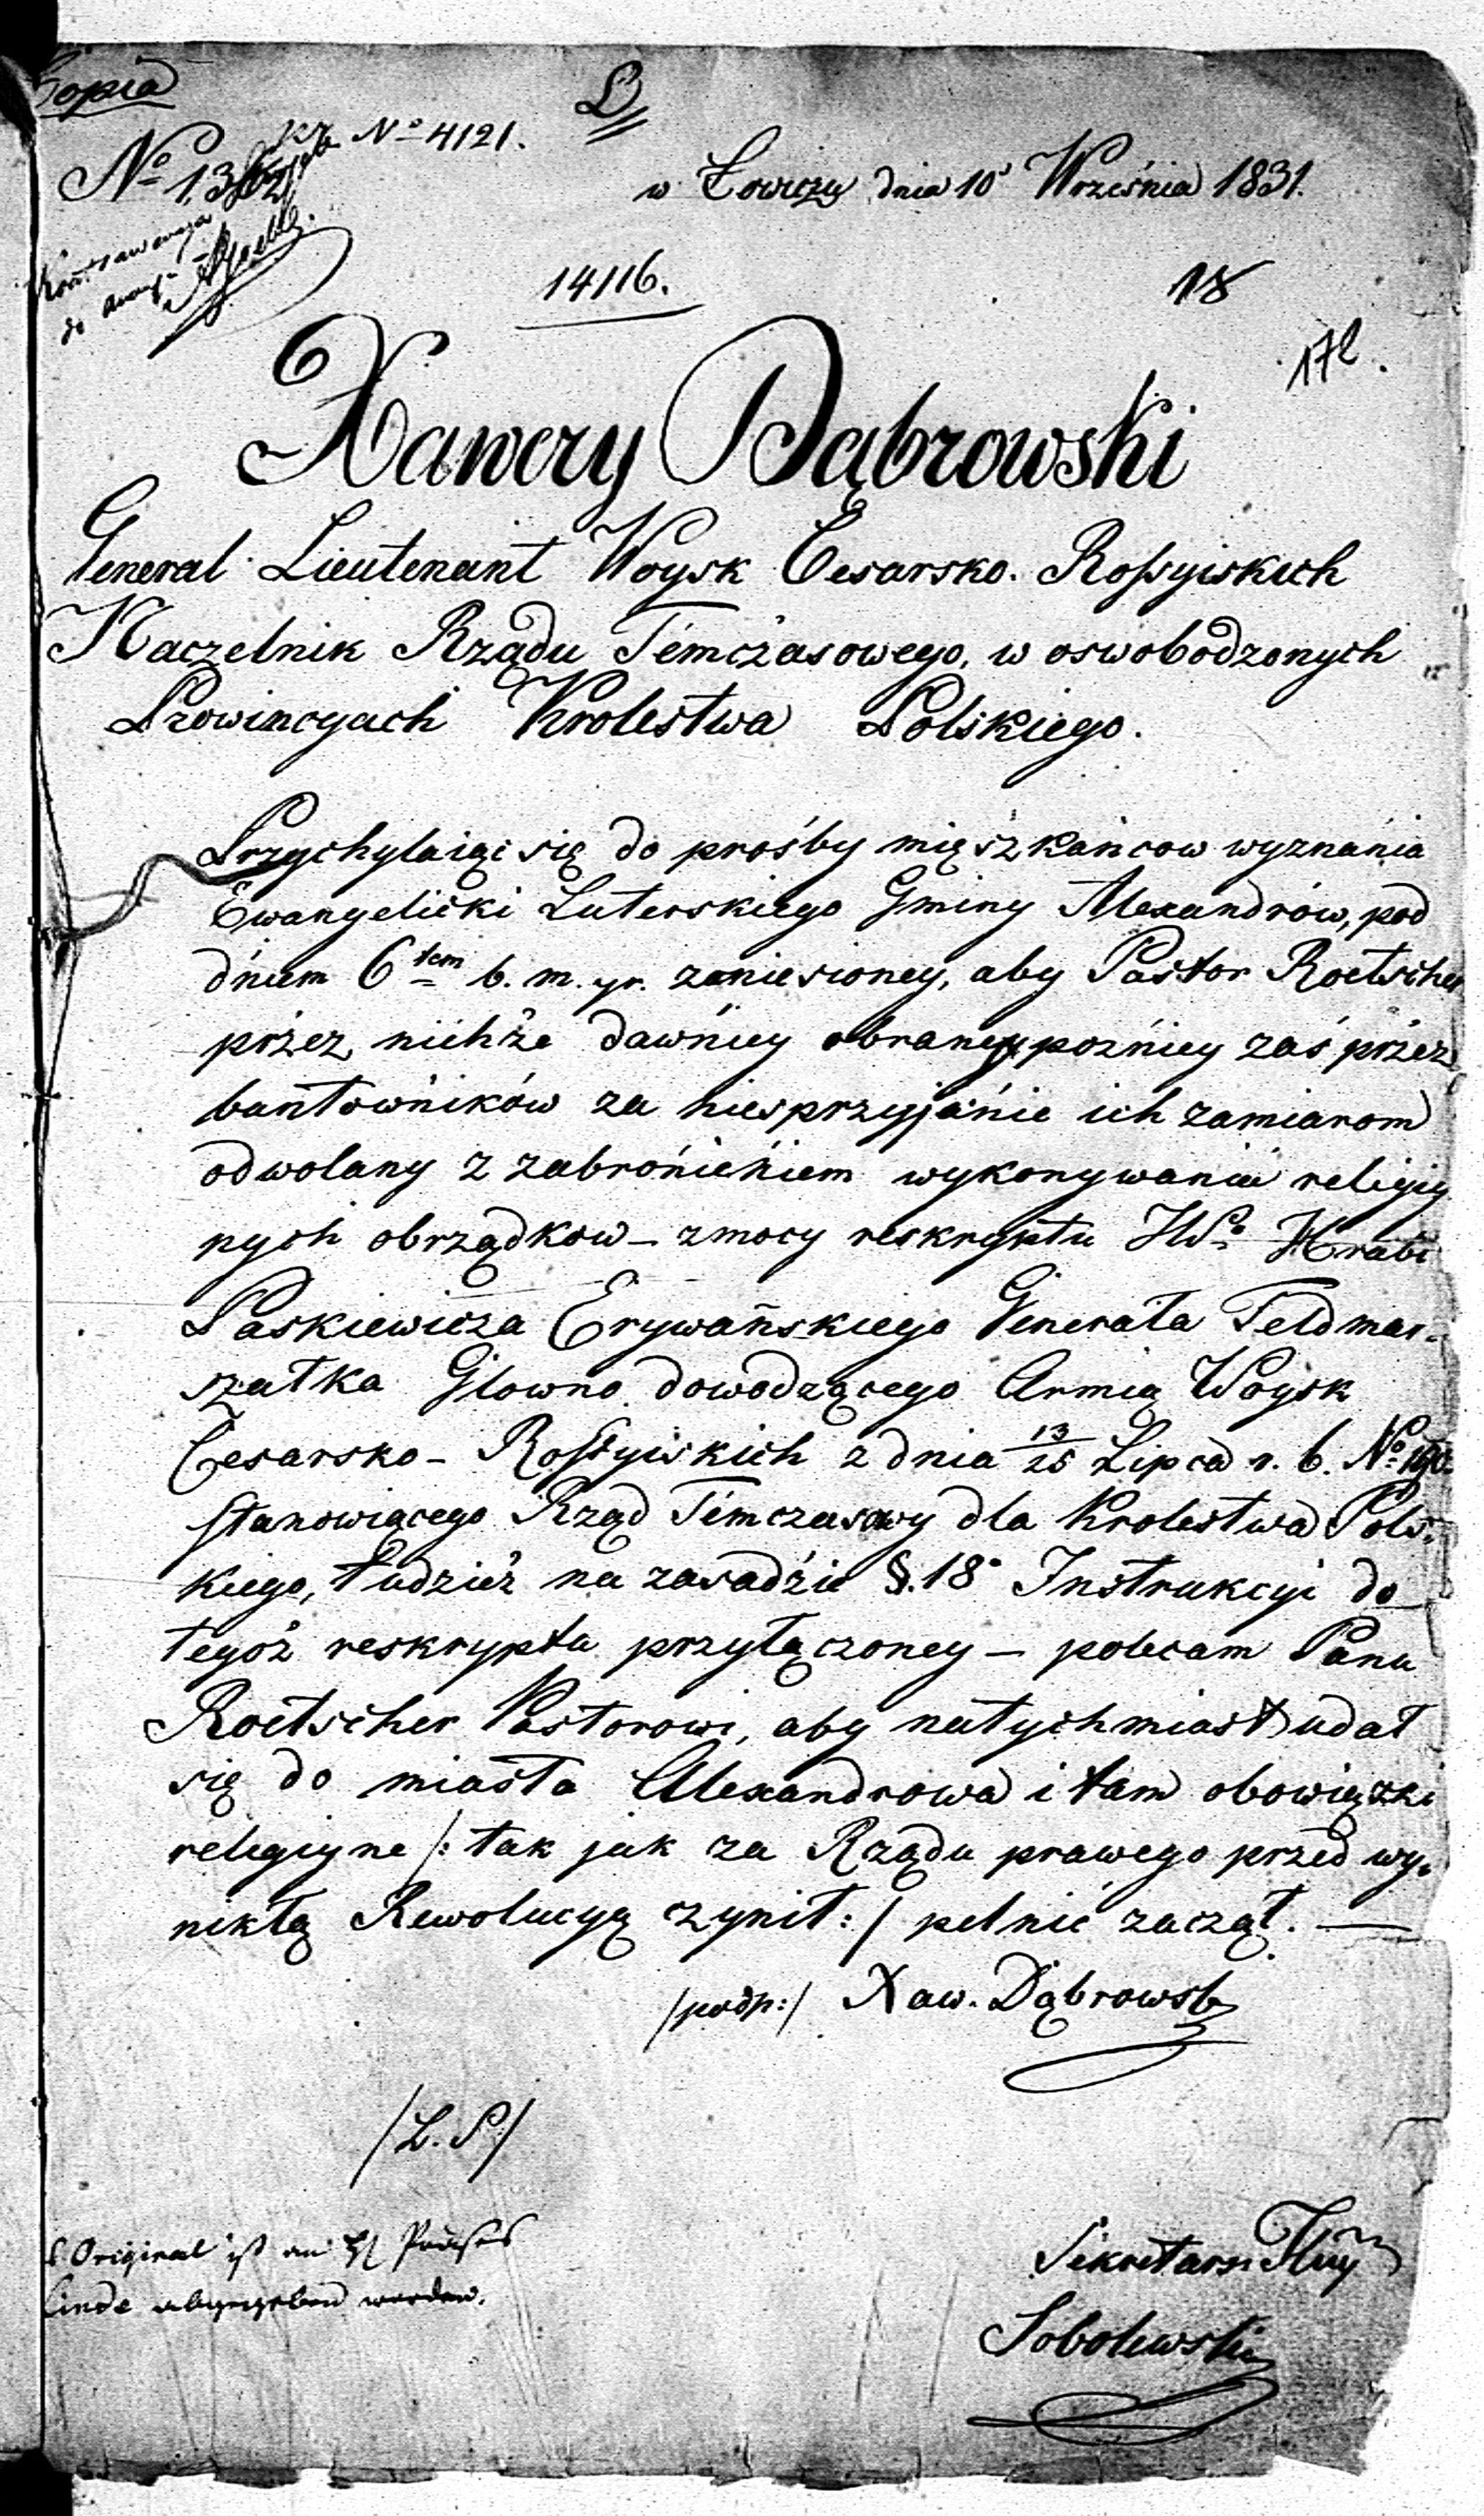 Kopia
D
N° 4121.
w Łowiczu dnia 10 Września 1831.
14116.
18
172.
Xawery Dąbrowski
General Lieutenant Woysk Cesarsko. Rossyiskich
Naczelnik Rządu Temczasowego, w oswobodzonych
Prowincyach Krolestwa Polskiego.
Przychylaiąc się do prośby mięszkańcow wyznania
Ewangelicki Luterskiego Gminy Alexandrów, pod
dniem 6tem b. m. y r. zaniesioney, aby Pastor Roetscher
przez nichże dawniey obrany, pozniey zaś przez
buntowników za niesprzyjanie ich zamiarom
odwolany z zabronieniem wykonywania religiy
nych obrządkow – zmocy reskryptu JWo Hrabi
Paskiewicza Erywańskiego Generała Feldmar-
szałka Głowno dowodzącego Armią Woysk
Cesarsko – Rossyiskich z dnia 13/25 Lipca r. b. No
stanowiącego Rząd Temczasowy dla Krolestwa Pols-
kiego, tudzież na zasadzie §. 18 Instrukcyi do
tegoż reskryptu przyłączoney – polecam Panu
Roetscher Pastorowi, aby natychmiast udał
się do miasta Alexandrowa i tam obowiązki
religiyne /: tak jak za Rządu prawego przed wy-
nikłą Rewolucyą czynił :/ pelnić zaczął. —
/podp:/ Xaw. Dąbrowski
/L. S/
Original ist an Präses
Linde abgegeben worden.
Sekretarz
Sobolewski